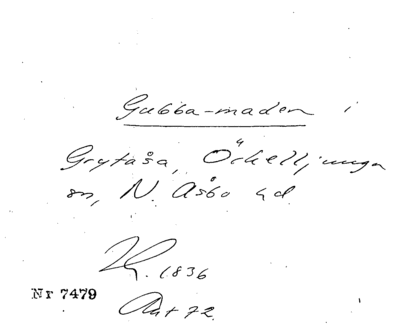 Gubba-maden i
Grytåsa, Örkelljunga
sn, N. Åsbo hd.
1836
Nr 7479
Akt 72